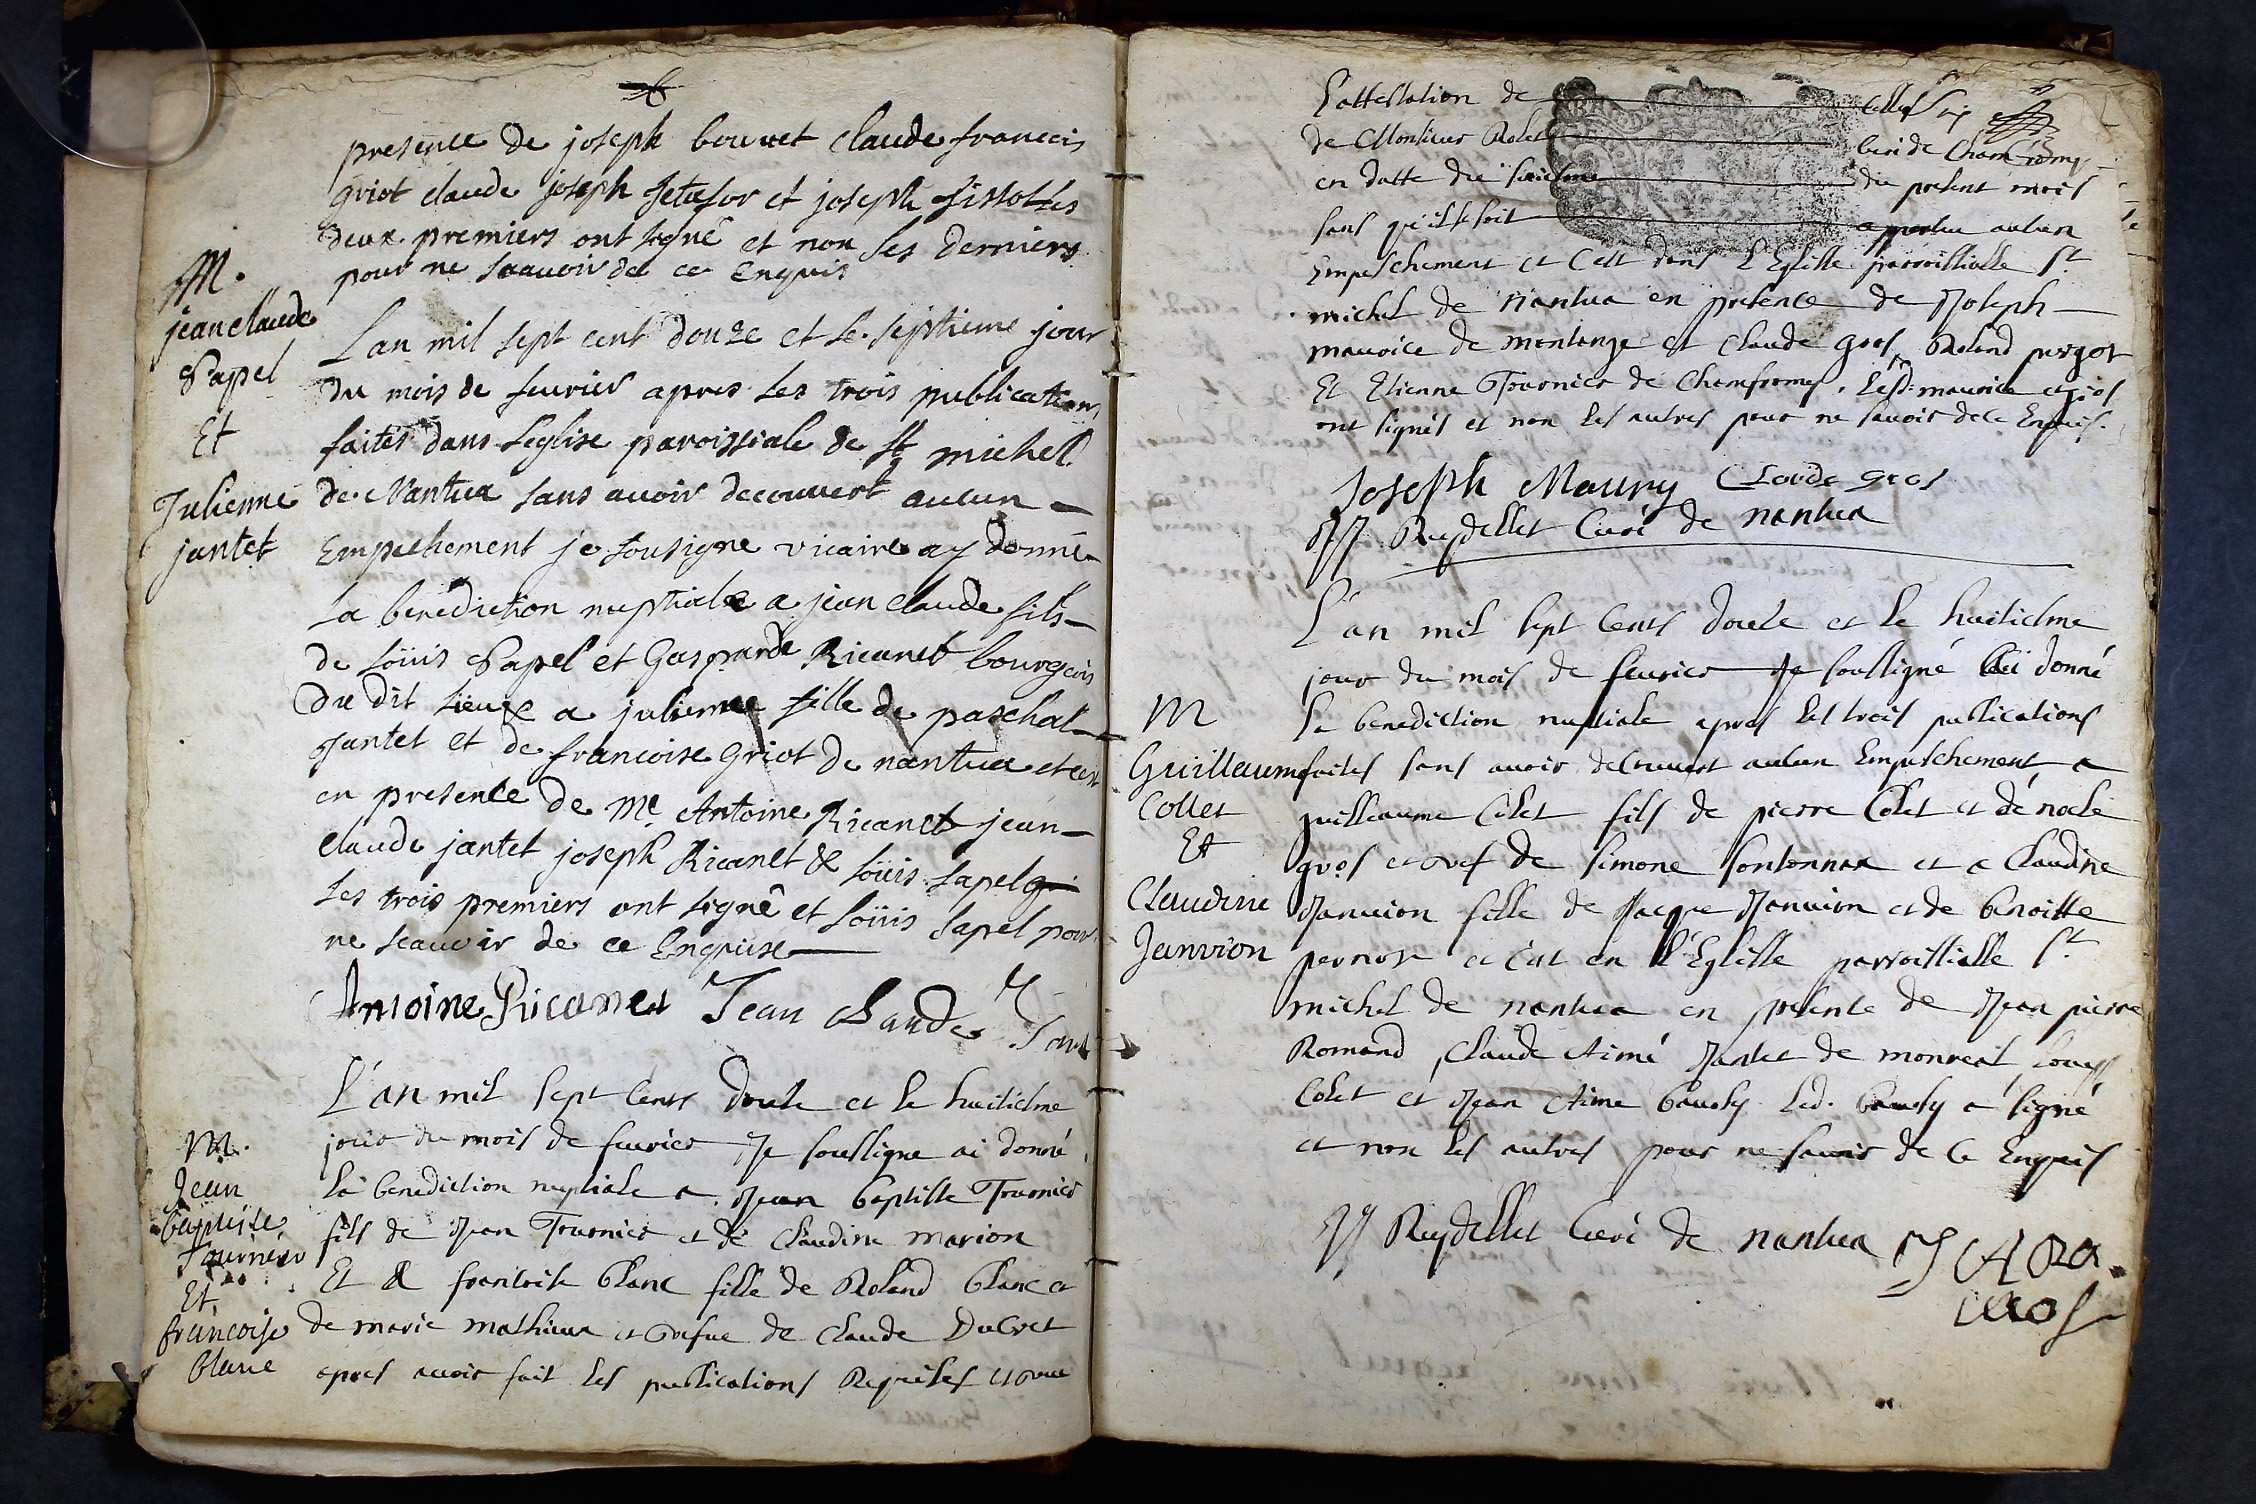 presence de joseph bouvet claude francois
griot claude joseph et joseph les
deux premiers ont signé et non les derniers
pour ne scauoir de ce Enquis
M.
jean claude
Sapel
Et
Julienne
jantet
Lan mil sept cent douze et le septieme jour
du mois de feurier apres les trois publications
faites dans leglise paroissiale de st michel
de Nantua sans auoir decouvert aucun
Empechement je sousigne vicaire ay donné
la benediction nuptiale a jean claude fils
de loüis Sapel et Gasparde Ricanet bourgeois
du dit lieux a julienne fille de paschal
Jantet et de francoise Griot de nantua et cest
en presence de Me Antoine Ricanet jean
claude jantet joseph Ricanet & loüis Sapel
les trois premiers ont signé et loüis Sapel pour
ne scauoir de ce Enquise
Antoine Ricanet Jean Claude Jan
M.
Jean
baptiste
Tournier
Et
francoise
blanc
L'an mil sept Cents douze et le huitiesme
jour du mois de feurier Je soussigne ai donné
la benediction nuptiale a Jean baptiste Tournier
fils de Jean Tournier et de Claudine marion
Et a francoise blanc fille de Roland blanc et
de marie mathieu et vefue de Claude Ducret
apres auoir fait les publications Requises et veu
l'attestation de
de Monsieur Rolet Curé de Chamfromy
en datte du huitiesme du present mois
sans qu'il se soit apparu aucun
Empeschement et C'est dans l'Eglisse parroissialle St
michel de nantua en presence de Joseph
maurice de montange et Claude gros, Roland purgot
Et Etienne Tournier de Chamfromy, Lesd. maurice et gros
ont signés et non les autres pour ne sauoir de ce Enquis.
Joseph Maury Claude gros
JJ Reydellet Curé de nantua
M
Guillaume
Collet
Et
Claudine
Janvion
L'an mil sept Cents douze et le huitiesme
jour du mois de feurier Je soussigné ai donné
la benediction nuptiale apres les trois publications
faites sans auoir decouuert aucun Empeschement a
guilleaume Colet fils de pierre Colet et de
gros et vef de simone sonthonnax et a Claudine
Janvion fille de Jacque Janvion et de benoitte
et C'est en l'Eglisse parroissialle St
michel de nantua en presence de Jean pierre
Romand, Claude Aimé Jantet de monreal, Louys
Colet et Jean Aime baudy Led. baudy a signé
et non les autres pour ne sauoir de ce Enquis
JJ Reydellet Curé de nantua